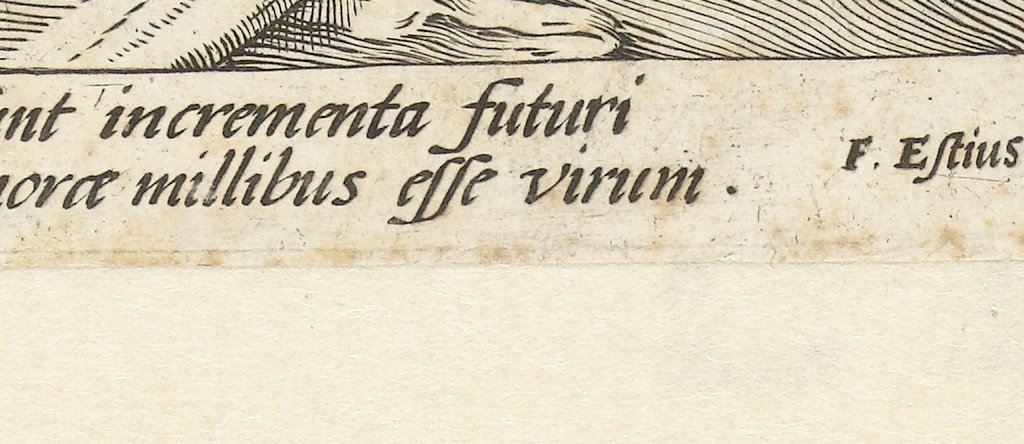 incrementa futuri
millibus eſſe virum.
F. Eſtius